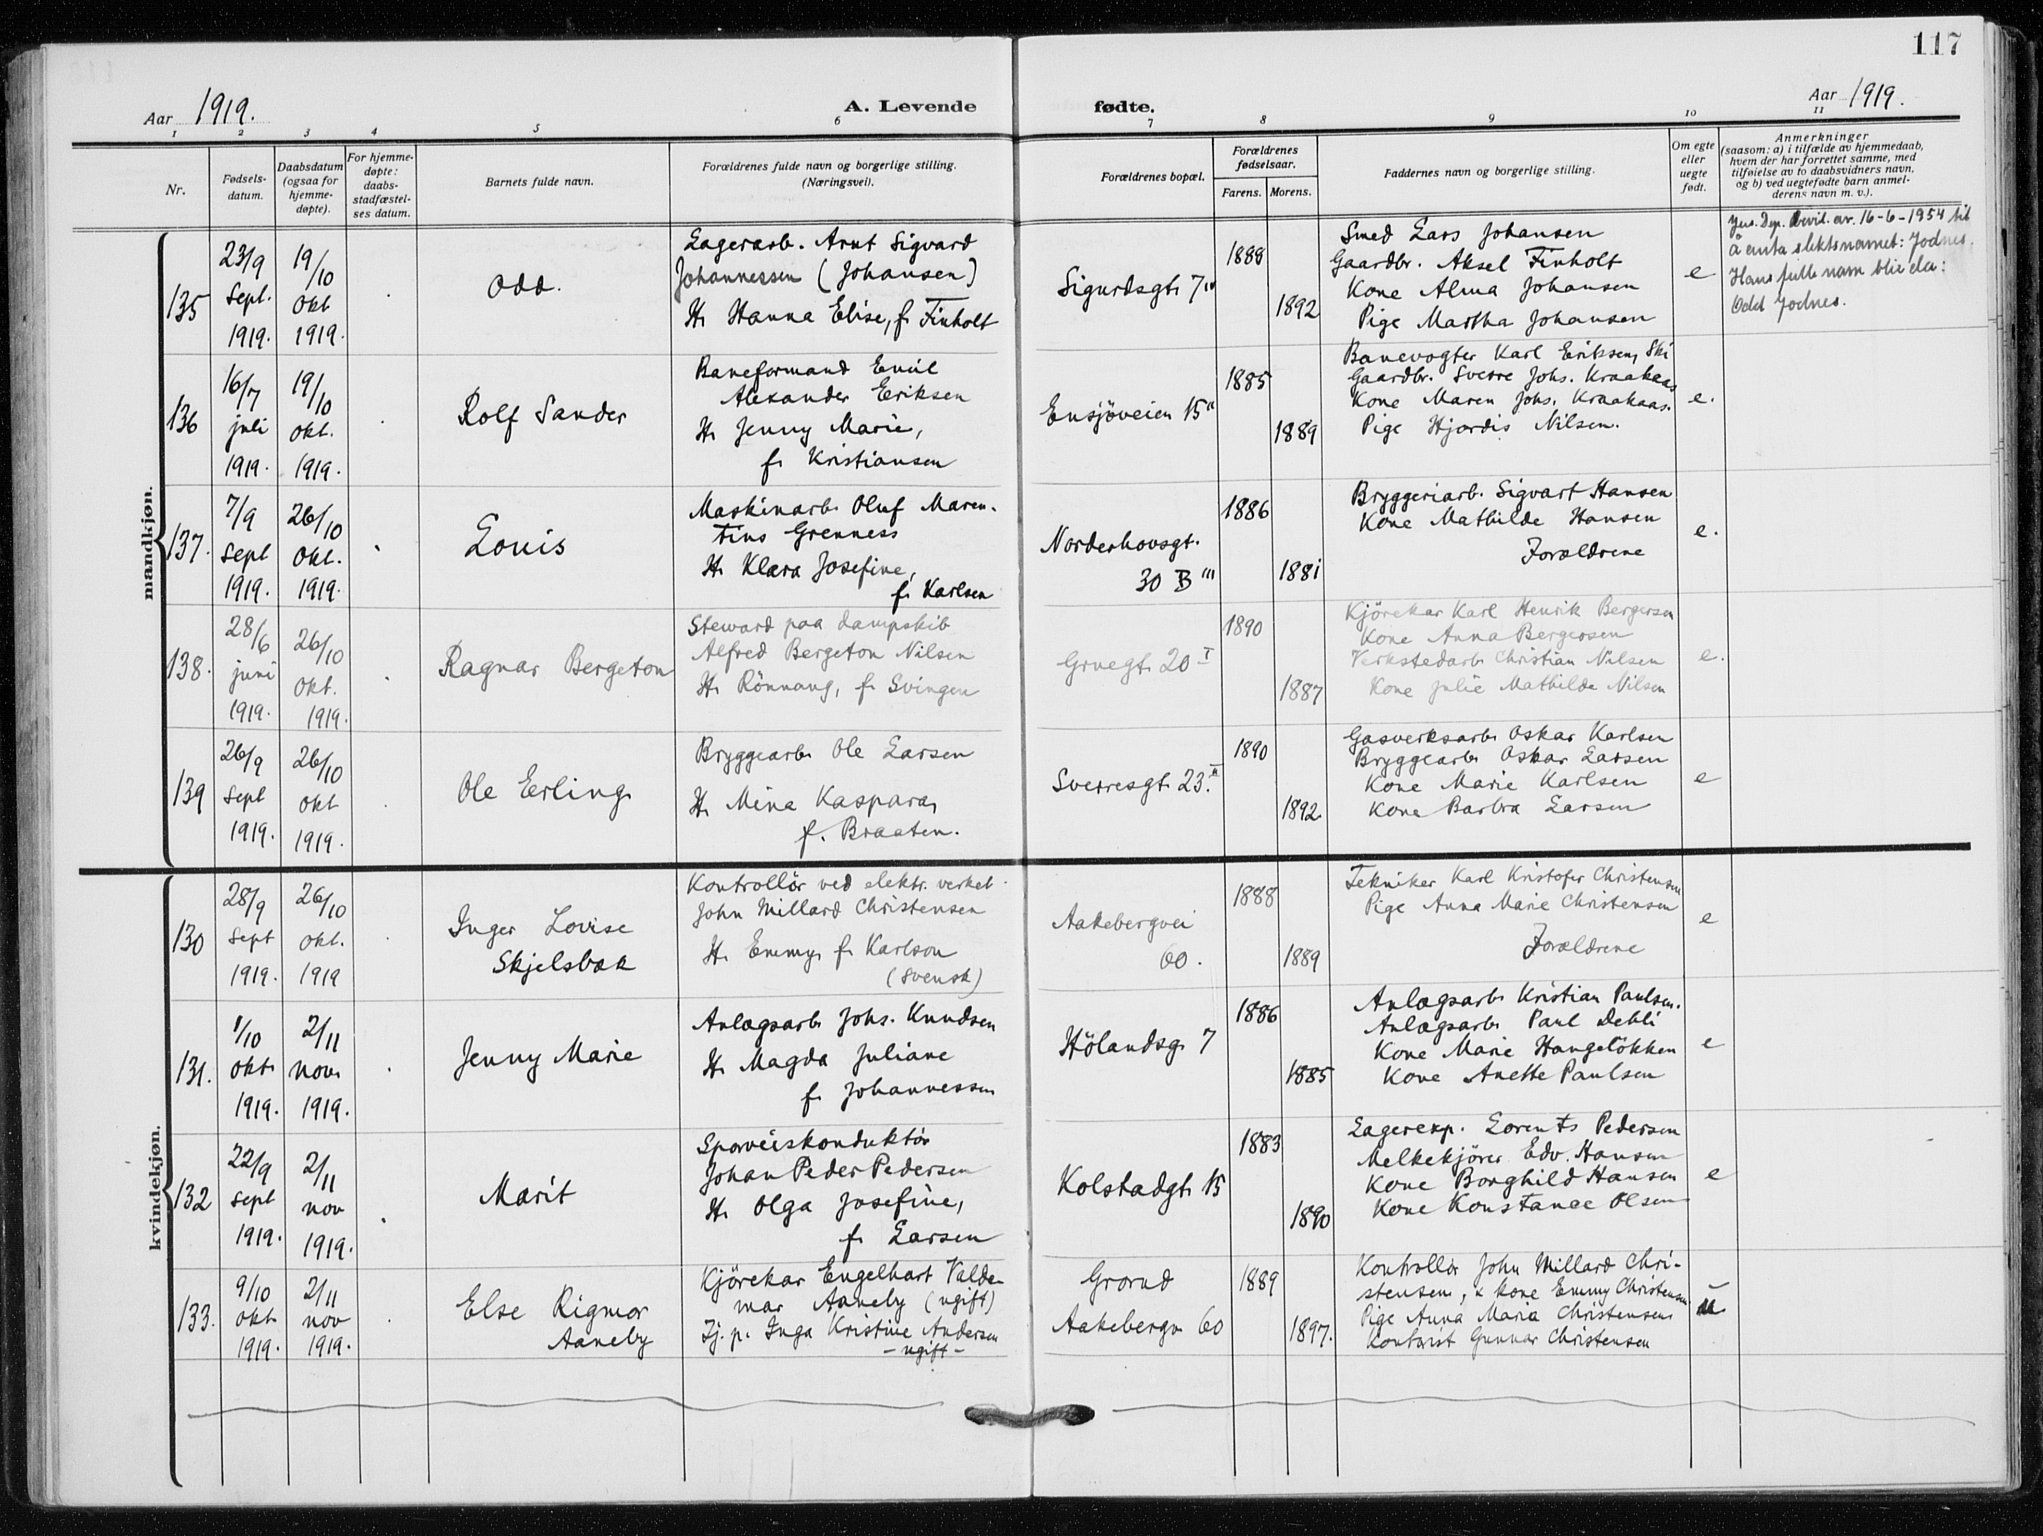 117
Aar 1919.
A. Levende
fødte.
Aar 1919.
1 2 3 4 5 6 7 8 9 10 11
Nr.
Fødsels-
datum.
Daabsdatum
(ogsaa for
hjemme-
døpte).
For hjemme-
døpte:
daabs-
stadfæstel-
ses datum.
Barnets fulde navn.
Forældrenes fulde navn og borgerlige stilling.
(Næringsvei).
Forældrenes bopæl.
Forældrenes
fødselsaar.
Farens. Morens.
Faddernes navn og borgerlige stilling.
Om egte
eller
uegte
født.
Anmerkninger
(saasom: a) i tilfælde av hjemmedaab,
hvem der har forrettet samme, med
tilføielse av to daabsvidners navn,
og b) ved uegtefødte barn anmel-
derens navn m. v.).
mandkjøn.
135
23/9
Sept.
1919.
19/10
Okt
1919.
Odd.
Lagerarb. Arnt Sigvard
Johannessen (Johansen)
H. Hanna Elise, f. Finholt
Sigurdsgt. 7"
1889
1892
Smed Lars Johansen
Gaardbr. Aksel Finholt
Kone Alma Johansen
Pige Martha Johansen
e
Jus. Dep. bevil. av. 16-6-1954 til
å anta slektsnavnet: Jodnes.
Hans fulle navn blir da:
Odd Jodnes.
136
16/7
juli
1919.
19/10
Okt.
1919.
Rolf Sander
Baneformand Emil
Alexander Eriksen
H. Jenny Marie,
f. Kristiansen
Ensjöveien 15"
1885
1889
Banevogter Karl Eriksen, Ski
Gaardbr. Sverre Johs. Kraakaas
Kone Maren Johs. Kraakaas.
Pige Hjordis Nilsen.
e.
137.
7/9
Sept
1919.
26/10
Okt.
1919.
Louis
Maskinarb. Oluf Maren-
tius Grenness
H. Klara Josefine,
f. Karlsen
Norderhovsgt.
30 B'''
1886
1881
Bryggeriarb. Sigvart Hansen
Kone Mathilde Hansen
Forældrene
e.
138.
28/6
juni
1919.
26/10
Okt.
1919.
Ragnar Bergeton
Steward paa dampskib
Alfred Bergeton Nilsen
H. Rönnaug, f. Svingen
Gruegt. 20 I
1890
1887
Kjörekar Karl Henrik Bergersen
Kone Anna Bergersen
Verkstedarb. Christian Nilsen
Kone Julie Mathilde Nilsen
e.
139
26/9
Sept
1919.
26/10
Okt
1919.
Ole Erling
Bryggearb. Ole Larsen
H. Mina Kaspara,
f. Braaten.
Sverresgt. 23. II
1890
1892
Gasverksarb. Oskar Karlsen
Bryggearb. Oskar Larsen
Kone Marie Karlsen
Kone Barbra Larsen
e
kvindekjøn.
130
28/9
Sept
1919.
26/10
Okt.
1919
Inger Lovise
Skjelsbæk
Kontrollör ved elektr. verket
John Millard Christensen
H. Emmy f. Karlson
(Svensk)
Aakebergvei
60.
1888
1889
Tekniker Karl Kristofer Christensen
Pige Anna Marie Christensen
Forældrene
e
131.
1/10
Okt.
1919.
2/11
nov.
1919.
Jenny Marie
Anlægsarb. Johs. Knudsen
H. Magda Juliane
f. Johannessen
Hölandsg. 7
1886
1885
Anlægsarb. Kristian Paulsen.
Anlægsarb. Paul Dehli
Kone Marie Haugelökken
Kone Anette Paulsen
e
132
22/9
Sept
1919.
2/11
nov
1919.
Marit
Sporveiskonduktör
Johan Peder Pedersen
H. Olga Josefine,
f. Larsen
Kolstadgt. 15
1883
1890
Lagerexp. Lorents Pedersen
Melkekjörer Edv. Hansen
Kone Borghild Hansen
Kone Konstance Olsen
e
133.
9/10
Okt
1919.
2/11
nov
1919.
Else Rigmor
Aaneby
Kjörekar Engelhart Valde-
mar Aaneby (ugift)
Tj. p. Inga Kristine Andersen
- ugift -
Grorud
Aakebergv 60
1889
1897.
Kontrollör John Millard Chri-
stensen, & kone Emmy Christensen
Pige Anna Maria Christensen
Kontorist Gunnar Christensen
u